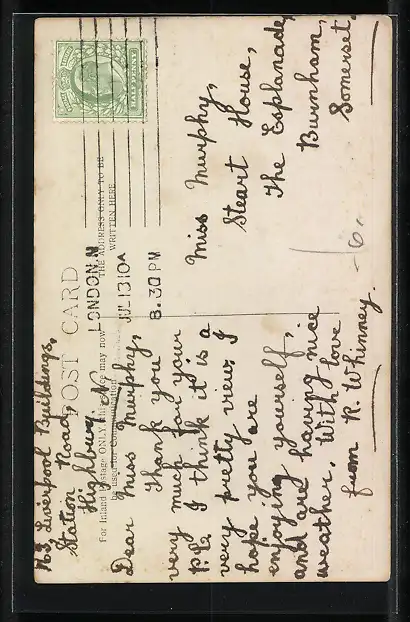 POST CARD
For Inland Postage ONLY this space may now
THE ADDRESS ONLY TO BE
WRITTEN HERE
HALFPENNY
LONDON.N
JUL 13 10 A
8.30 PM
Liverpool Buildings,
Station Road,
Highbury, N
Dear Miss Murphy,
Thank you
very much for your
P.C. I think it is a
very pretty view. I
hope you are
enjoying yourself,
and are having nice
weather. With love
from R. Whinney.
Miss Murphy,
Steart House,
The Esplanade,
Burnham,
Somerset.